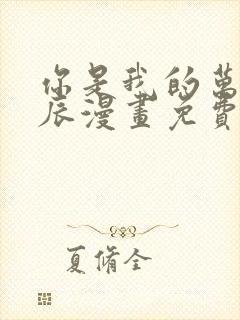 你是我的萬
辰漫畫免費
夏脩全